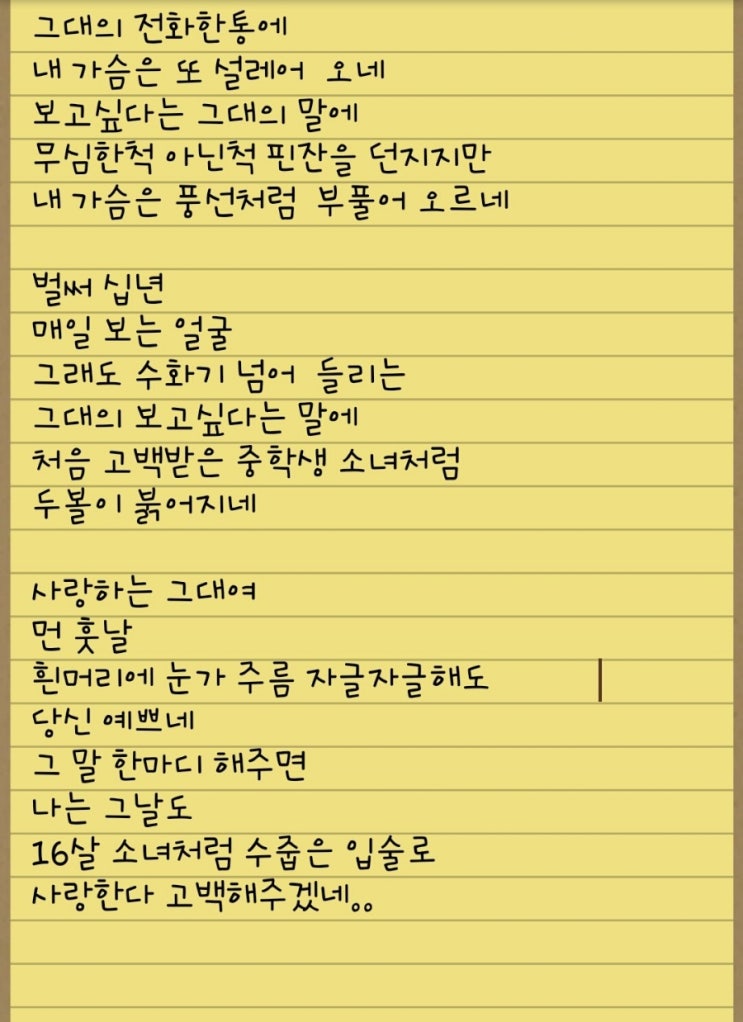 그대의 전화한통에
내 가슴은 또 설레어 오네
보고싶다는 그대의 말에
무심한척 아닌척 핀잔을 던지지만
내 가슴은 풍선처럼 부풀어 오르네
벌써 십년
매일 보는 얼굴
그래도 수화기 넘어 들리는
그대의 보고싶다는 말에
처음 고백받은 중학생 소녀처럼
두볼이 붉어지네
사랑하는 그대여
먼 훗날
흰머리에 눈가 주름 자글자글해도
당신 예쁘네
그 말 한마디 해주면
나는 그날도
16살 소녀처럼 수줍은 입술로
사랑한다 고백해주겠네..